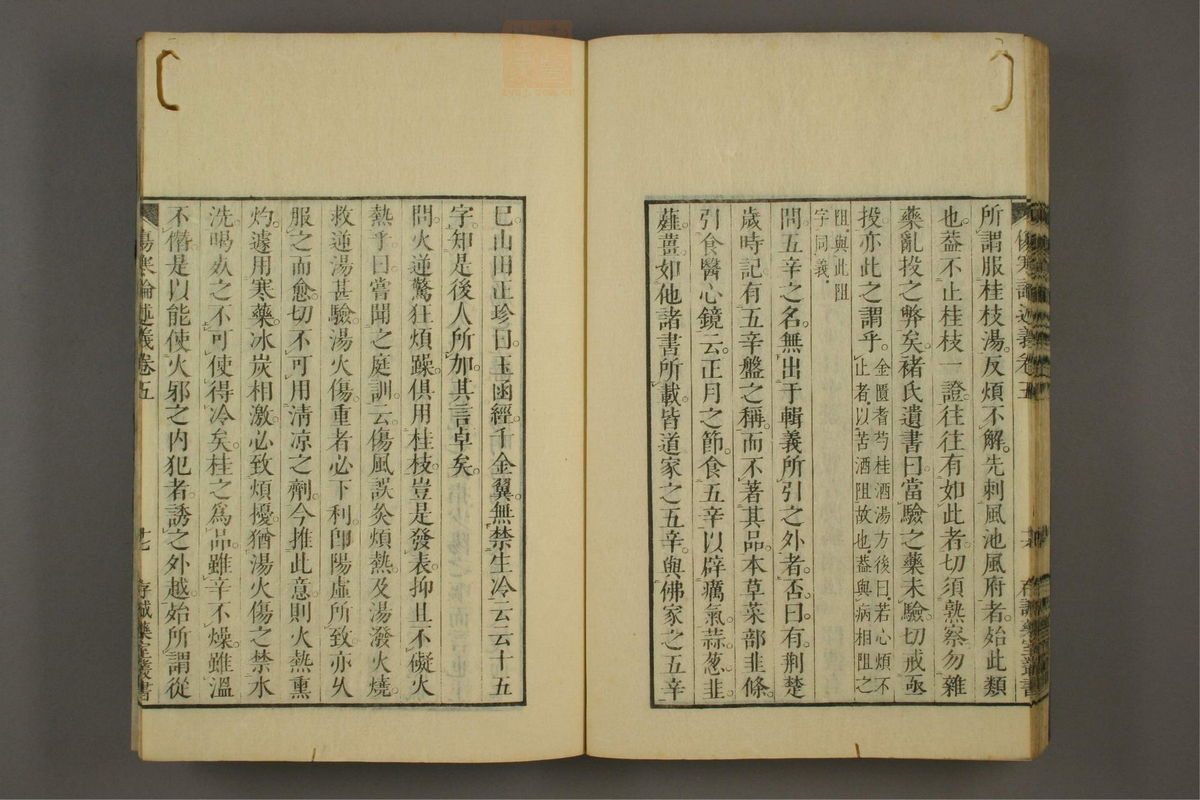 所謂服桂枝湯反煩不解先刺風池風府者始此類
也。葢不止桂枝一證往往有如此者切須熟察勿雜
藥亂投之弊矣。褚氏遺書曰。當驗之藥未驗。切戒亟
投。亦此之謂乎。金匱耆芍桂酒湯方後曰。若心煩不
止者。以苦酒阻故也。葢與病相阻之
阻。與此阻
字同義。
問五辛之名。無出于輯義所引之外者。否。曰。有。荆楚
歲時記有五辛盤之稱。而不著其品。本草菜部韭條。
引食醫心鏡云。正月之節。食五辛以辟癘氣。蒜。葱。韭
薤。薑。如他諸書所載。皆道家之五辛。與佛家之五辛
傷寒論述義卷五
存誠藥室叢書
已山田正珍曰。玉函經。千金翼。無禁生冷云云十五
字。知是後人所加。其言卓矣。
問。火逆驚狂煩躁。俱用桂枝。豈是發表。抑且不礙火
熱乎。曰。嘗聞之庭訓。云。傷風誤灸煩熱。及湯潑火燒。
救逆湯甚驗。湯火傷。重者必下利。卽陽虛所致。亦乆
服之而愈。切不可用淸凉之劑。今推此意。則火熱熏
灼。遽用寒藥。冰炭相激。必致煩擾。猶湯火傷之禁水
洗。暍㱁之不可使得冷矣。桂之爲品。雖辛不燥。雖溫
不僭。是以能使火邪之内犯者。誘之外越。始所謂從
傷寒論述義卷五
十七
存誠藥室叢書